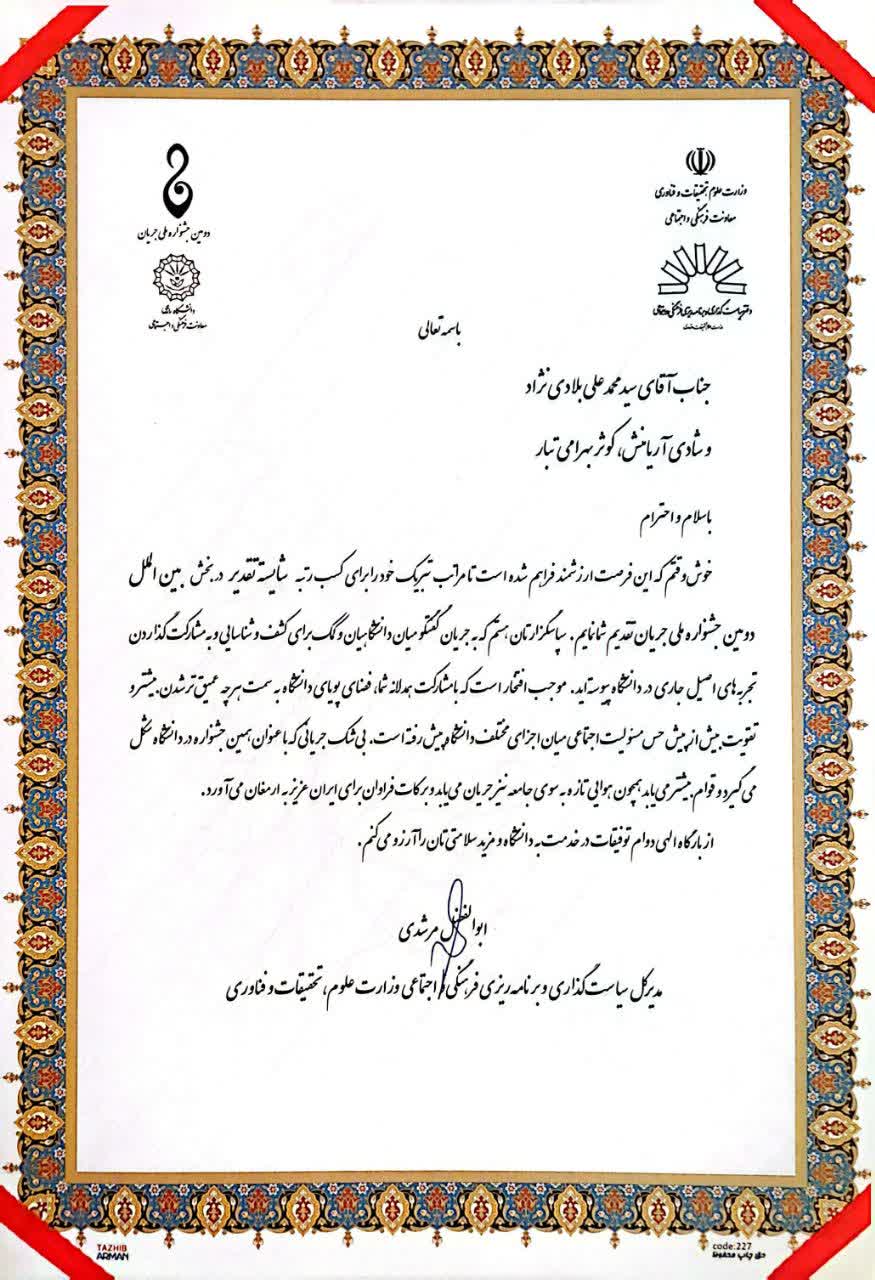 وزارت علوم تحقیقات و فناوری
معاونت فرهنگی و اجتماعی
دفتر سیاست گذاری و برنامه ریزی فرهنگی و اجتماعی
دومین جشنواره ملی جریان
معاونت فرهنگی و اجتماعی
باسمه تعالی
جناب آقای سید محمد علی بلادی نژاد
و شادی آریامنش، کوثر بهرامی تبار
با سلام و احترام
خوش وقتم که این فرصت ارزشمند فراهم شده است تا مراتب تبریک خود را برای کسب رتبه شایسته تقدیر در بخش بین الملل
دومین جشنواره ملی جریان تقدیم شما نمایم. سپاسگزارتان هستم که به جریان گفتگو میان دانشگاهیان و کمک برای کشف و شناسایی و به مشارکت گذاردن
تجربه های اصیل جاری در دانشگاه پیوسته اید. موجب افتخار است که با مشارکت همدلانه شما، فضای پویای دانشگاه به سمت هرچه عمیق تر شدن، بیشتر و
تقویت بیش از پیش حس مسئولیت اجتماعی میان اجزای مختلف دانشگاه پیش رفته است. بی شک جریانی که با عنوان همین جشنواره در دانشگاه شکل
می گیرد و قوام بیشتر می یابد همچون هوایی تازه به سوی جامعه نیز جریان می یابد و برکات فراوان برای ایران عزیز به ارمغان می آورد.
از بارگاه الهی دوام توفیقات در خدمت به دانشگاه و مزید سلامتی تان را آرزو می کنم.
ابوالفضل مرشدی
مدیرکل سیاست گذاری و برنامه ریزی فرهنگی و اجتماعی وزارت علوم، تحقیقات و فناوری
TAZHIB
ARMAN
code:227
حق چاپ محفوظ